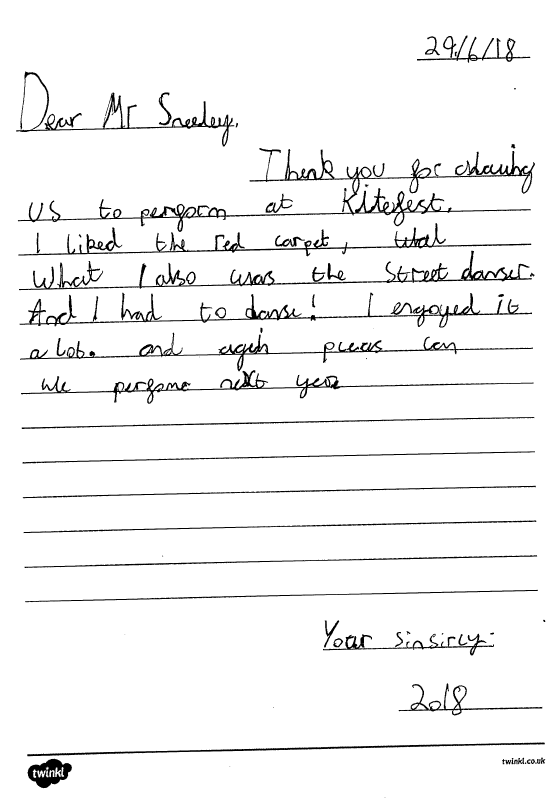 29/6/18
Dear Mr Sneeley,
Thank you for
us to perform at Kitefest.
I liked the red carpet,
What I also was the Street danser.
And I had to danse! I engoyed it
a lot. and agin pleas can
we perfome next year
Your sinsirly:
2018
twinkl
twinkl.co.uk